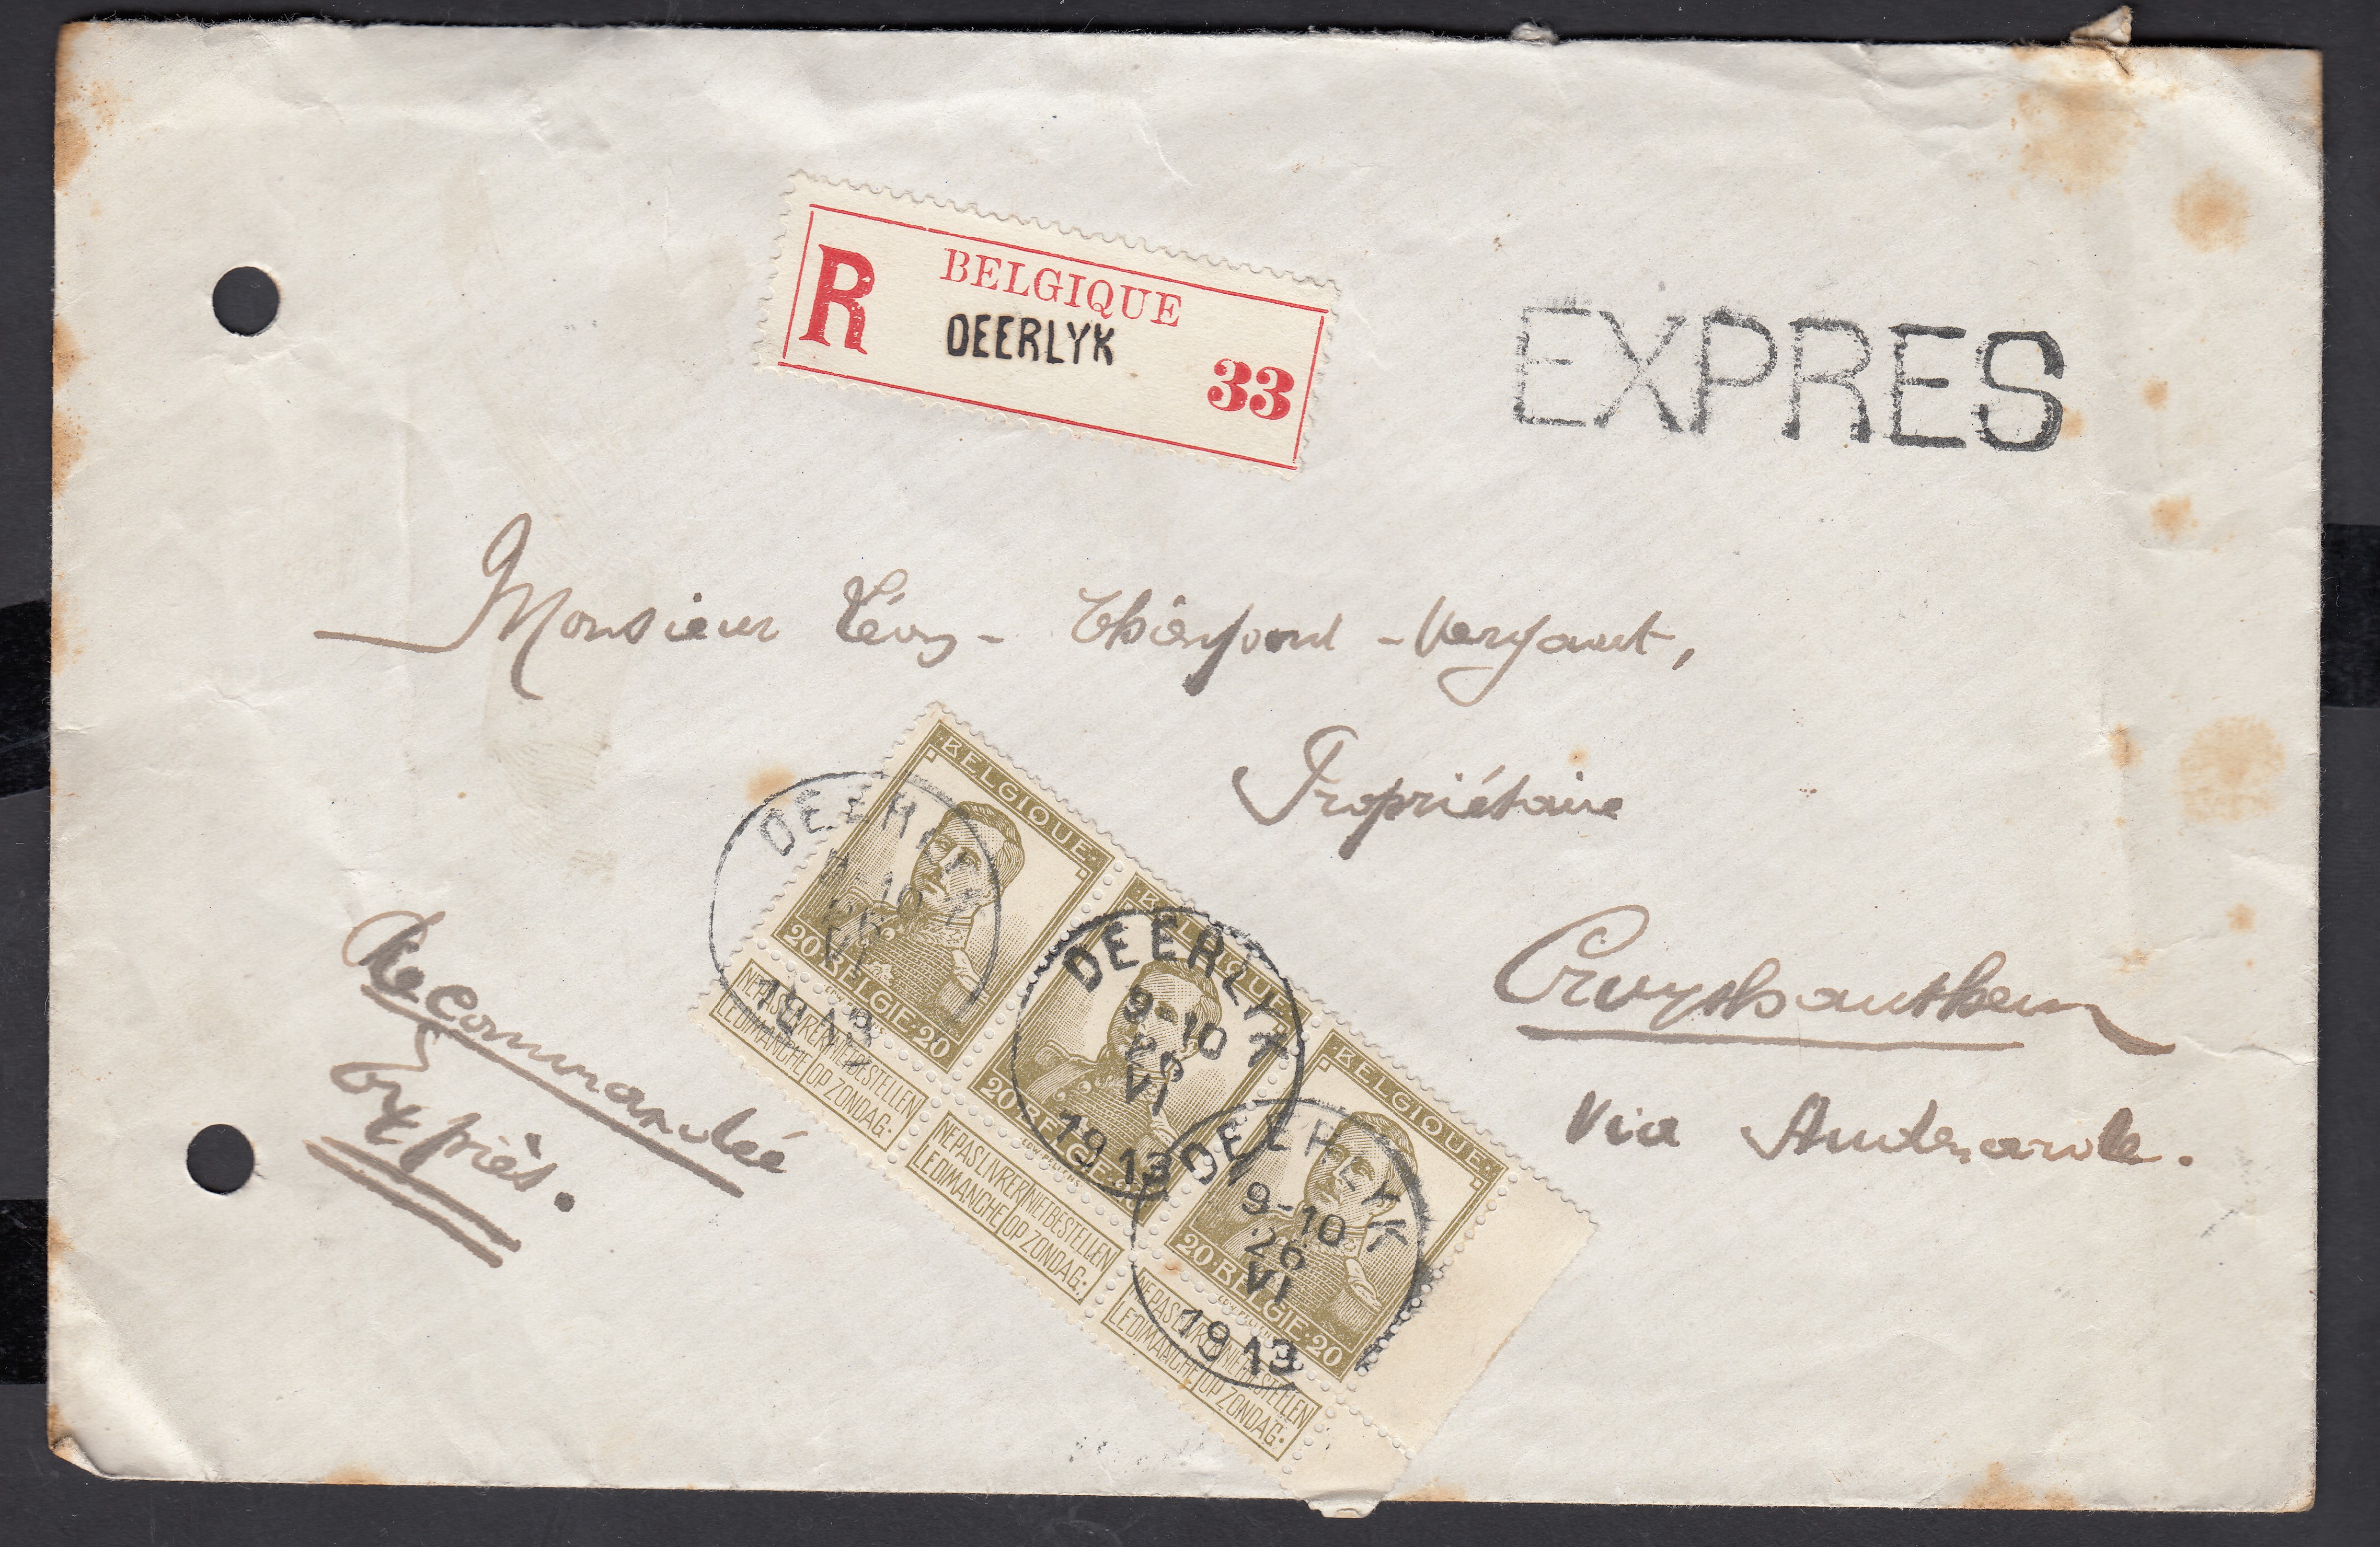 R BELGIQUE
DEERLYK
33
EXPRES
Monsieur Léon -
Propriétaire
Cruyshauthem
Via Audenarde.
Recommandé
Exprès.
·BELGIQUE·
20·BELGIE·20
NE PAS LIVRER NIET BESTELLEN
LE DIMANCHE OP ZONDAG·
·BELGIQUE·
20·BELGIE·20
NE PAS LIVRER NIET BESTELLEN
LE DIMANCHE OP ZONDAG·
·BELGIQUE·
20·BELGIE·20
NE PAS LIVRER NIET BESTELLEN
LE DIMANCHE OP ZONDAG·
DEERLYK
9-10
26
VI
1913
DEERLYK
9-10
26
VI
1913
DEERLYK
9-10
26
VI
1913